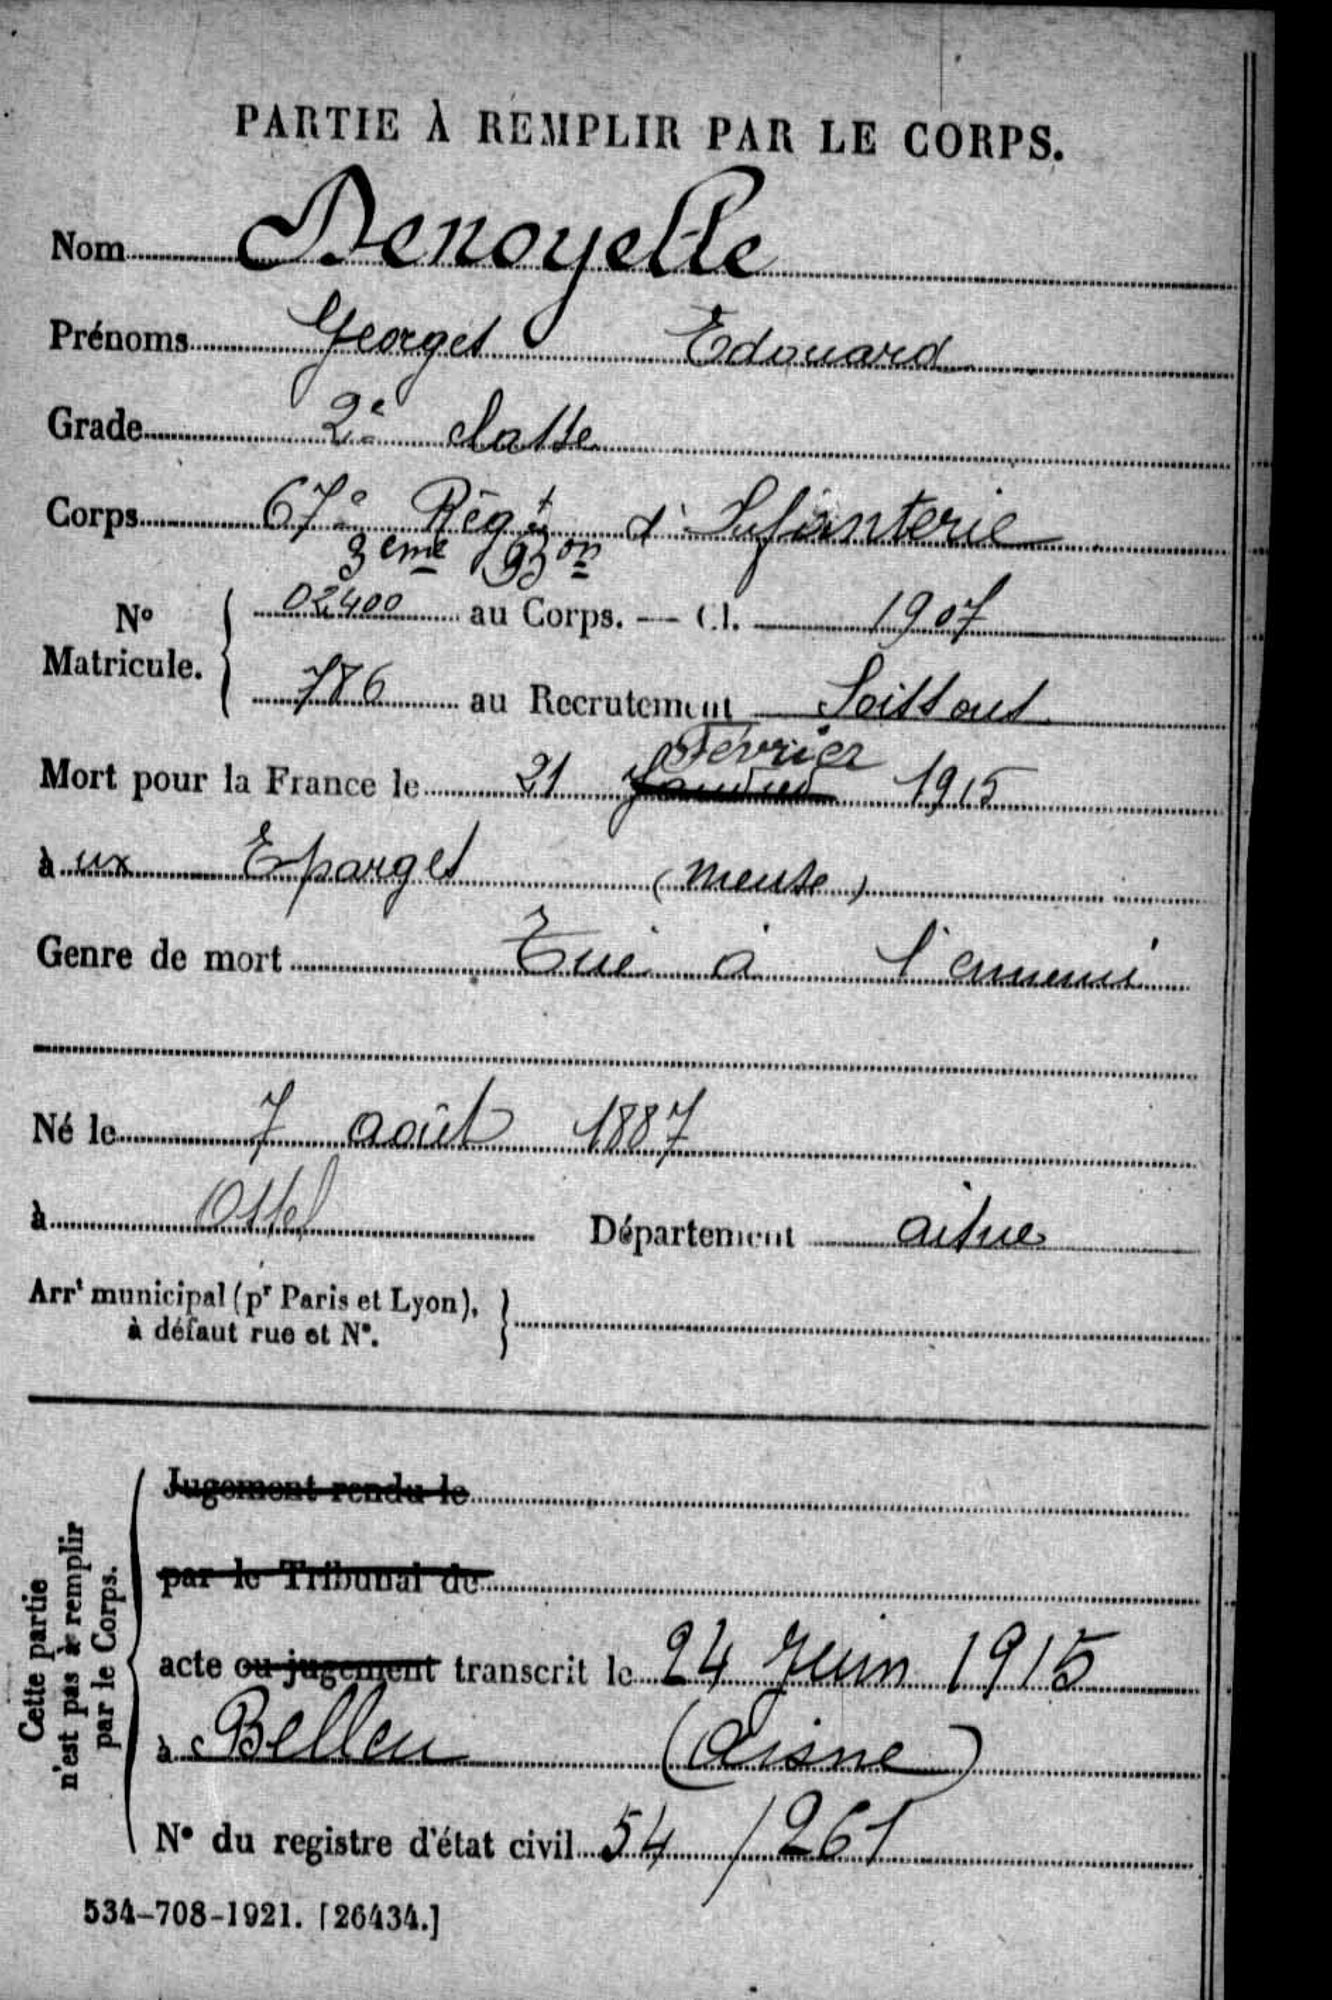 PARTIE À REMPLIR PAR LE CORPS.
Nom Denoyelle
Prénoms Georges Edouard
Grade 2e classe
Corps 67e Régt d'Infanterie
3ème Bon
No Matricule. 02400 au Corps. — Cl. 1907
786 au Recrutement Soissons
Février
Mort pour la France le 21 Janvier 1915
à ux Eparges (Meuse)
Genre de mort Tué à l'ennemi
Né le 7 août 1887
à Ostel Département Aisne
Arrt municipal (pr Paris et Lyon),
à défaut rue et No.
Cette partie
n'est pas à remplir
par le Corps.
Jugement rendu le
par le Tribunal de
acte ou jugement transcrit le 24 Juin 1915
à Belleu (Aisne)
No du registre d'état civil 54 / 261
534-708-1921. [26434.]